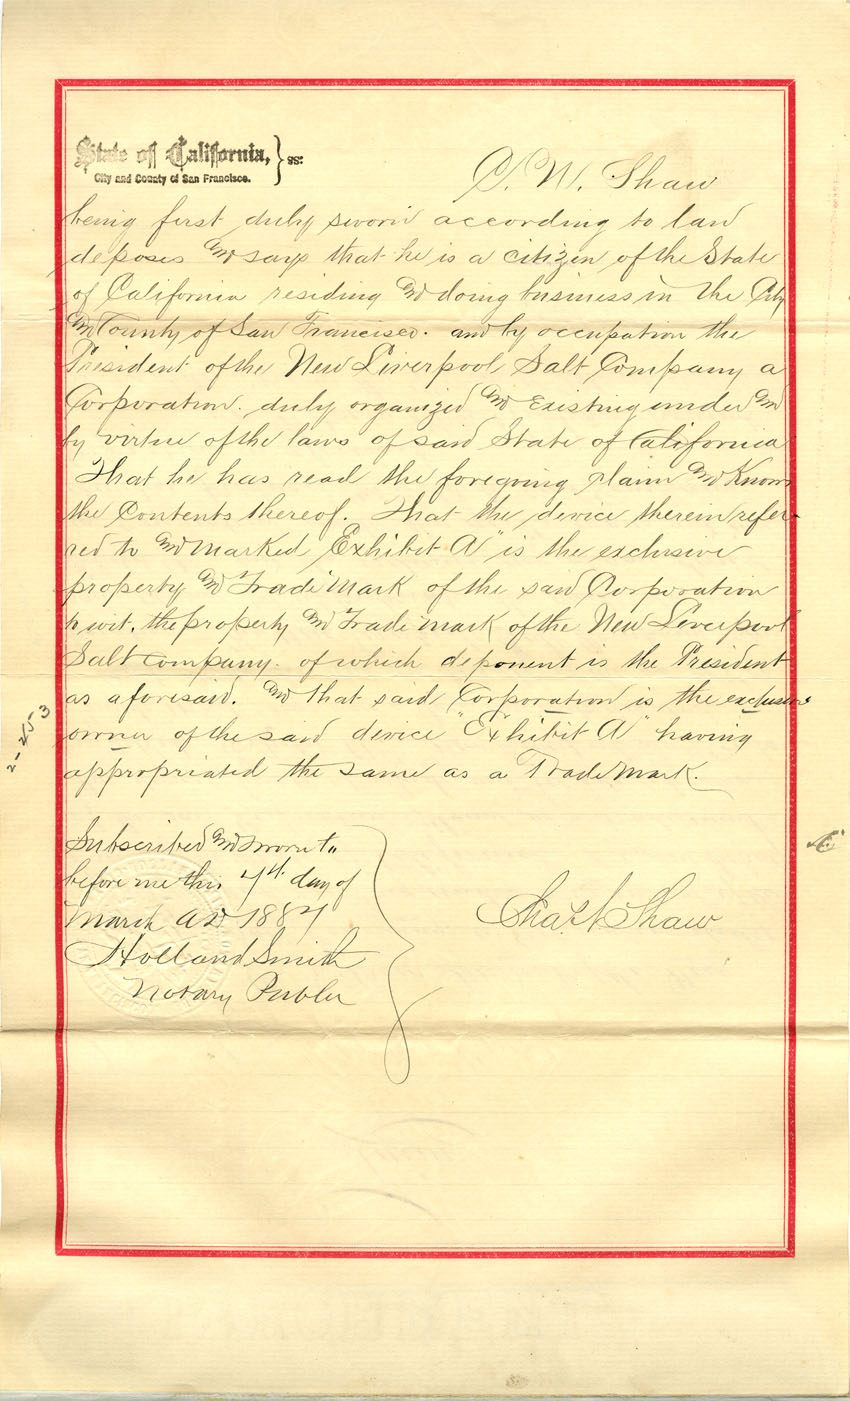 State of California, } ss:
City and County of San Francisco.
C. W. Shaw
being first duly sworn according to law
deposes and says that he is a citizen of the State
of California residing and doing business in the City
and County of San Francisco. and by occupation the
President of the New Liverpool Salt Company a
Corporation. duly organized and existing under and
by virtue of the laws of said State of California
That he has read the foregoing claim and Knows
the Contents thereof. That the device therein refer-
red to and marked "Exhibit A" is the exclusive
property and Trade Mark of the said Corporation
to wit, the property and Trade mark of the New Liverpool
Salt Company. of which deponent is the President
as aforesaid. and that said Corporation is the exclusive
owner of the said device "Exhibit A" having
appropriated the same as a Trade Mark.
2-253
Subscribed and Sworn to
before me this 7th day of
March AD 1887
Holland Smith
Notary Public
Chas W Shaw